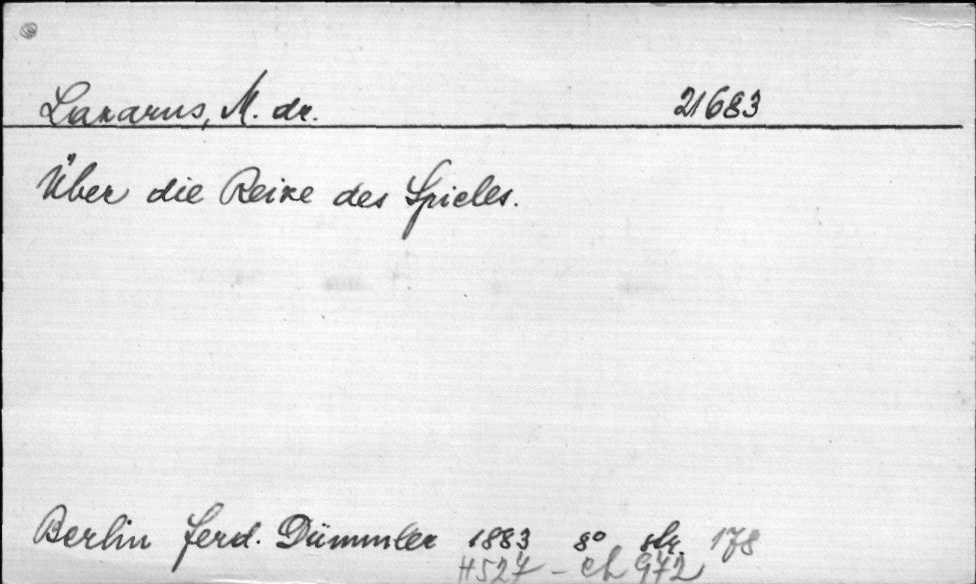 Lazarus, M. dr. 21683
Über die Reize des Spieles.
Berlin Ferd. Dümmler 1883 8° str. 178
H527 - ch 972